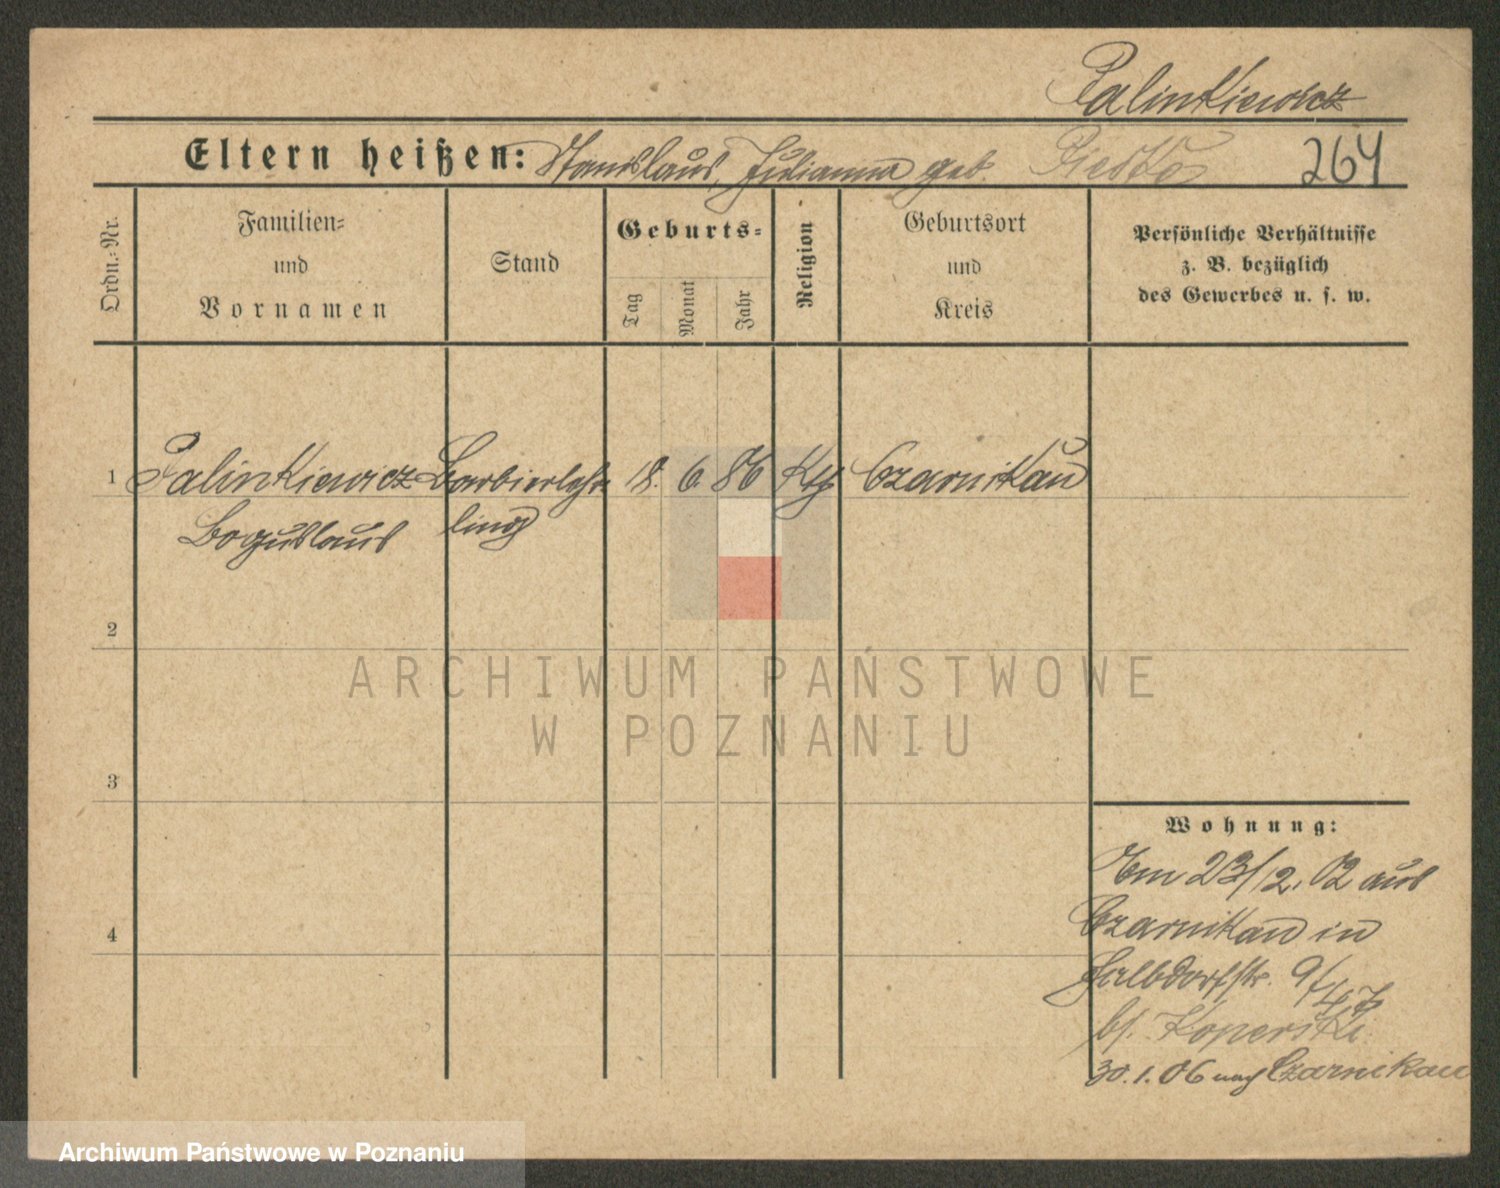 Palinkiewicz
Eltern heißen: Stanislaus, Julianna geb. 264
Ordn.-Nr.
Familien-
und
Vornamen
Stand
Geburts-
Tag
Monat
Jahr
Religion
Geburtsort
und
Kreis
Persönliche Verhältnisse
z. B. bezüglich
des Gewerbes u. s. w.
1 Palinkiewicz Barbierlehr 18. 6. 86 Kth Czarnikau
Boguslaus ling
2
3
4
ARCHIWUM PAŃSTWOWE
W POZNANIU
Wohnung:
23/2. 02 aus
Czarnikau in
Halbdorfstr. 9/
bei Koperski
30.1.06 nach Czarnikau
Archiwum Państwowe w Poznaniu